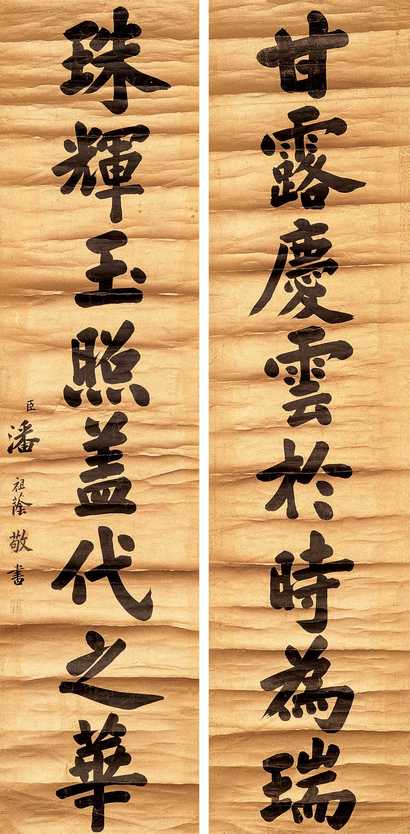 甘露慶雲於時為瑞
珠輝玉照盖代之華
臣潘祖蔭敬書